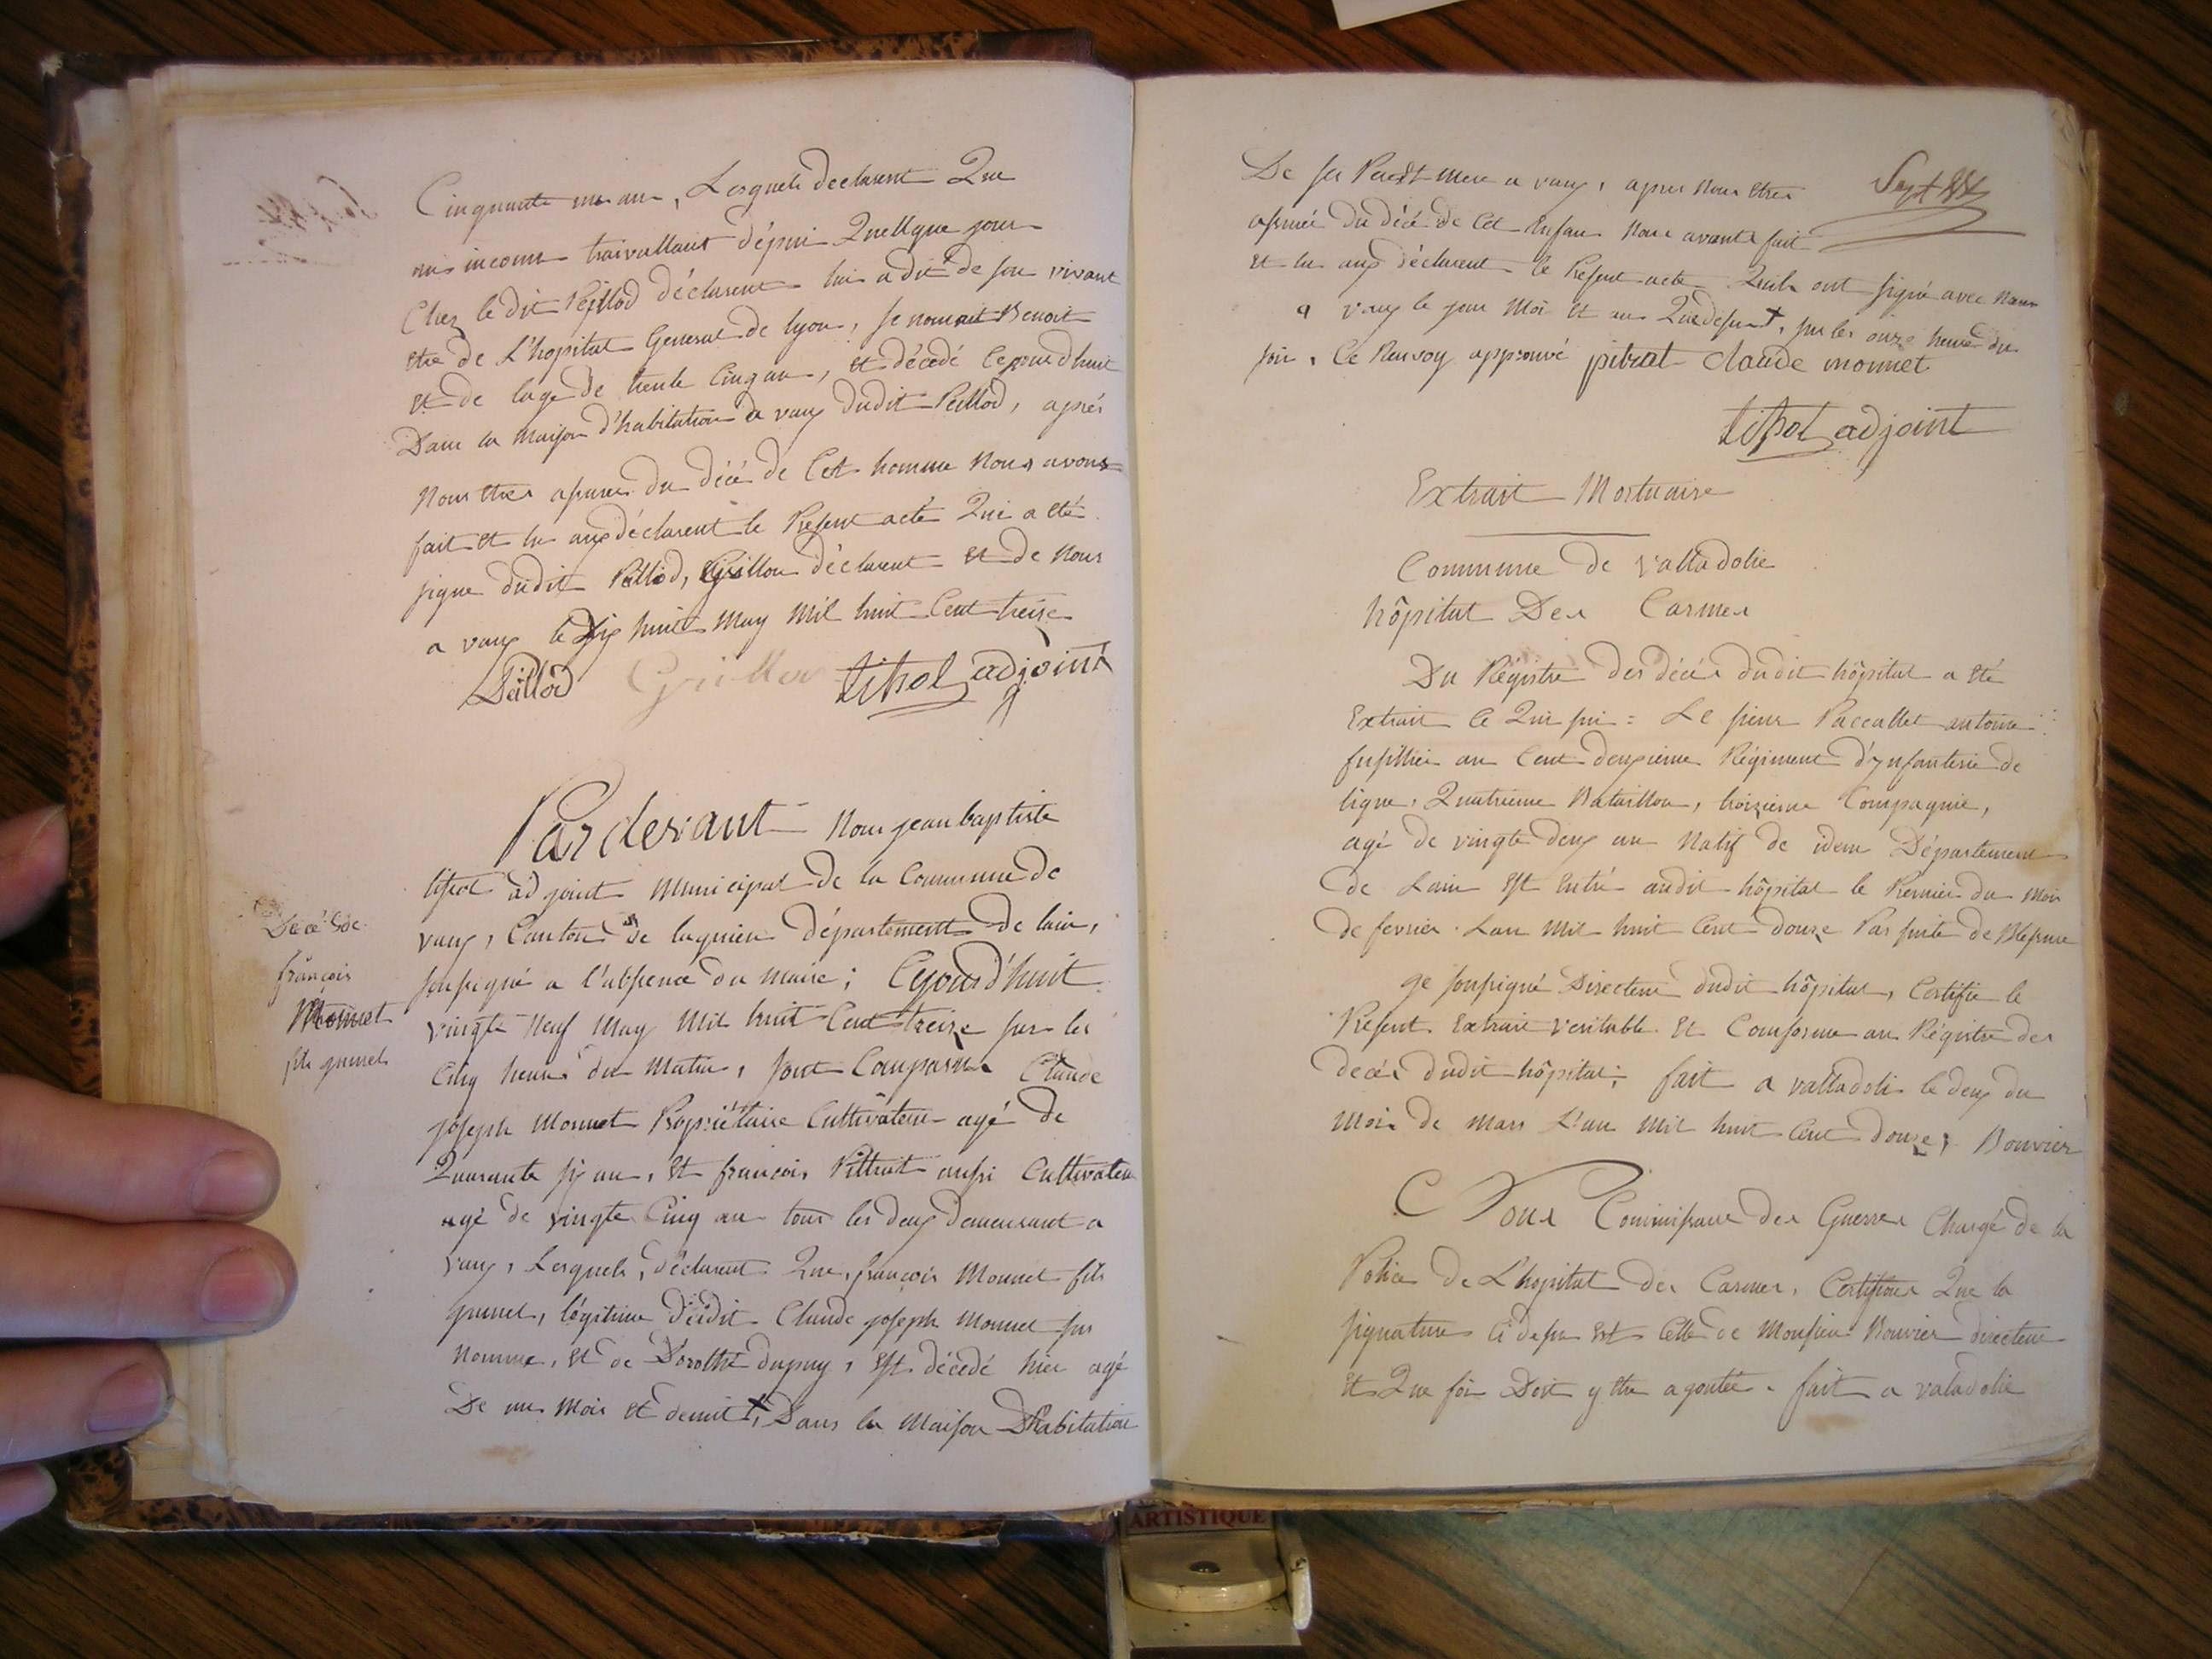 Cinquante un an, Lesquels declarent Que
un inconu traivallant dépui Quellque jour
Chez le dit Peillod déclarent lui a dit de son vivant
etre de L'hopital General de lyon, se nomait Benoit
et de lage de trente Cinq an, et décédé Cejourdhuit
Dans la maison d'habitation a vaux dudit Peillod, aprés
Nous etres assurer du décé de Cet homme Nous avons
fait et lu aux déclarent le Present acte Qui a eté
signe dudit Peillod, Grillon déclarent et de Nous
a vaux le Dix huit May Mil huit Cent treize
Peillod Grillon tissot adjoint
Pardevant Nous jean baptiste
tissot adjoint Municipal de la Commune de
vaux, Canton de lagnieu département de lain,
soussigné a l'abssence du maire; Cejourd'huit
vingte Neuf May Mil huit Cent treize sur les
Cinq heures du Matin, sont Comparus Claude
joseph Monnet Propriétaire Cultivateur agé de
Quarante six an, et francois Pittrat aussi Cultivateur
agé de vingte Cinq an tous les deux demeurant a
vaux, Lesquels, déclarent Que, françois Monnet fils
jumel, légitime dudit Claude joseph Monnet sus
Nomme, et de Dorothé dupuy, est décédé hier agé
De un Mois et demit +, Dans la Maison Dhabitation
Décé de
françois
Monnet
fils jumel
De ses Pere et mere a vaux, apres Nous etres
assurée du décé de Cet Enfan Nous avons fait
et lu aux déclarent le Present acte Quils ont signé avec Nous
a vaux le jour Moi et an Quedessus +, sur les onze heures du
soir, Ce Renvoy approuvé pitrat claude monnet
tissot adjoint
Sept
Extrait Mortuaire
Commune de Valladolie
hôpital Des Carmes
Du Régistre des décés dudit hôpital a eté
Extrait Ce Qui sui = Le sieur Paccallet antoine
fusillier au Cent deuxieme Régiment d'ynfanterie de
ligne, Quatrieme Bataillon, troizieme Compagnie,
agé de vingte deux an Natif de idem Département
de Lain est Entré audit hôpital le Premier du Mois
de fevrier Lan Mil huit Cent douze Par suite de Blessure
je soussigné Directeur dudit hôpital, Certifie le
Present Extrait veritable et Comforme au Régistre des
décés dudit hôpital; fait a valladoli le deux du
Mois de Mars L'an Mil huit Cent douze; Bouvier
Nous Commissaire des Guerres Chargé de la
Police de L'hopital des Carmes, Certifions Que la
signature Ci dessu est Celle de Monsieur Bouvier directeur
et Que foi Doit y etre agoutée. fait a valadolie
ARTISTIQUE